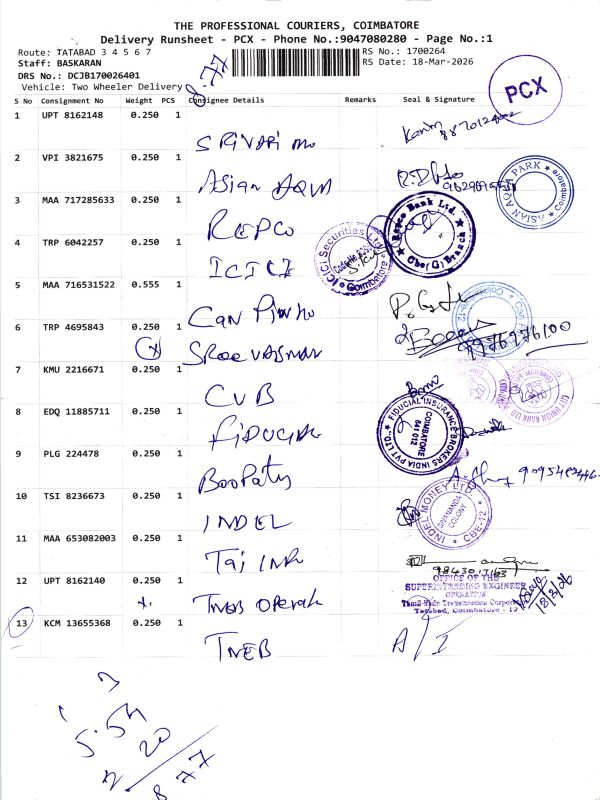 THE PROFESSIONAL COURIERS, COIMBATORE
Delivery Runsheet - PCX - Phone No.:9047080280 - Page No.:1
Route: TATABAD 3 4 5 6 7
RS No.: 1700264
Staff: BASKARAN
RS Date: 18-Mar-2026
DRS No.: DCJB170026401
Vehicle: Two Wheeler Delivery
8.77
PCX
S No Consignment No Weight PCS Consignee Details Remarks Seal & Signature
1 UPT 8162148 0.250 1 SRIVARI
2 VPI 3821675 0.250 1 ASian AQUA
ASIAN AQUA PARK * Coimbatore *
3 MAA 717285633 0.250 1 REPCO
Repco Bank Ltd. * Cbe(G) Branch *
4 TRP 6042257 0.250 1 ICICI
ICICI Securities Ltd * Coimbatore
5 MAA 716531522 0.555 1 Can
6 TRP 4695843 0.250 1 SREE
9776276100
7 KMU 2216671 0.250 1 CUB
CITY UNION BANK LTD
8 EDQ 11885711 0.250 1 FIDUCIAR
FIDUCIAL INSURANCE BROKERS INDIA PVT LTD.
COIMBATORE 641 012
9 PLG 224478 0.250 1 BooPaty
10 TSI 8236673 0.250 1 INDEL
INDEL MONEY LTD * CBE-12 *
SIVANANDA COLONY
11 MAA 653082003 0.250 1 Tai
12 UPT 8162140 0.250 1 TNEB Operati
OFFICE OF THE
SUPERINTENDING ENGINEER
OPERATION
Tamil Nadu Transmission Corpora
Tatabad, Coimbatore - 12
18/3/26
13 KCM 13655368 0.250 1 TNEB A/I
5.54
20
8 77